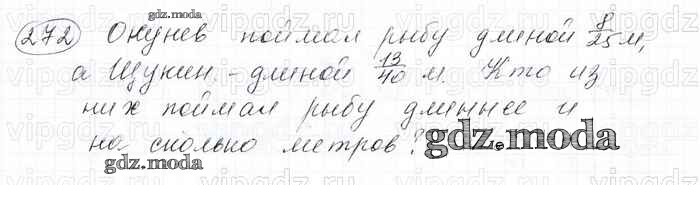 272 Окунев поймал рыбу длиной 8/25 м,
а Щукин - длиной 13/40 м. Кто из
них поймал рыбу длиннее и
на сколько метров?
gdz.moda
gdz.moda
gdz.moda
gdz.moda
vipgdz